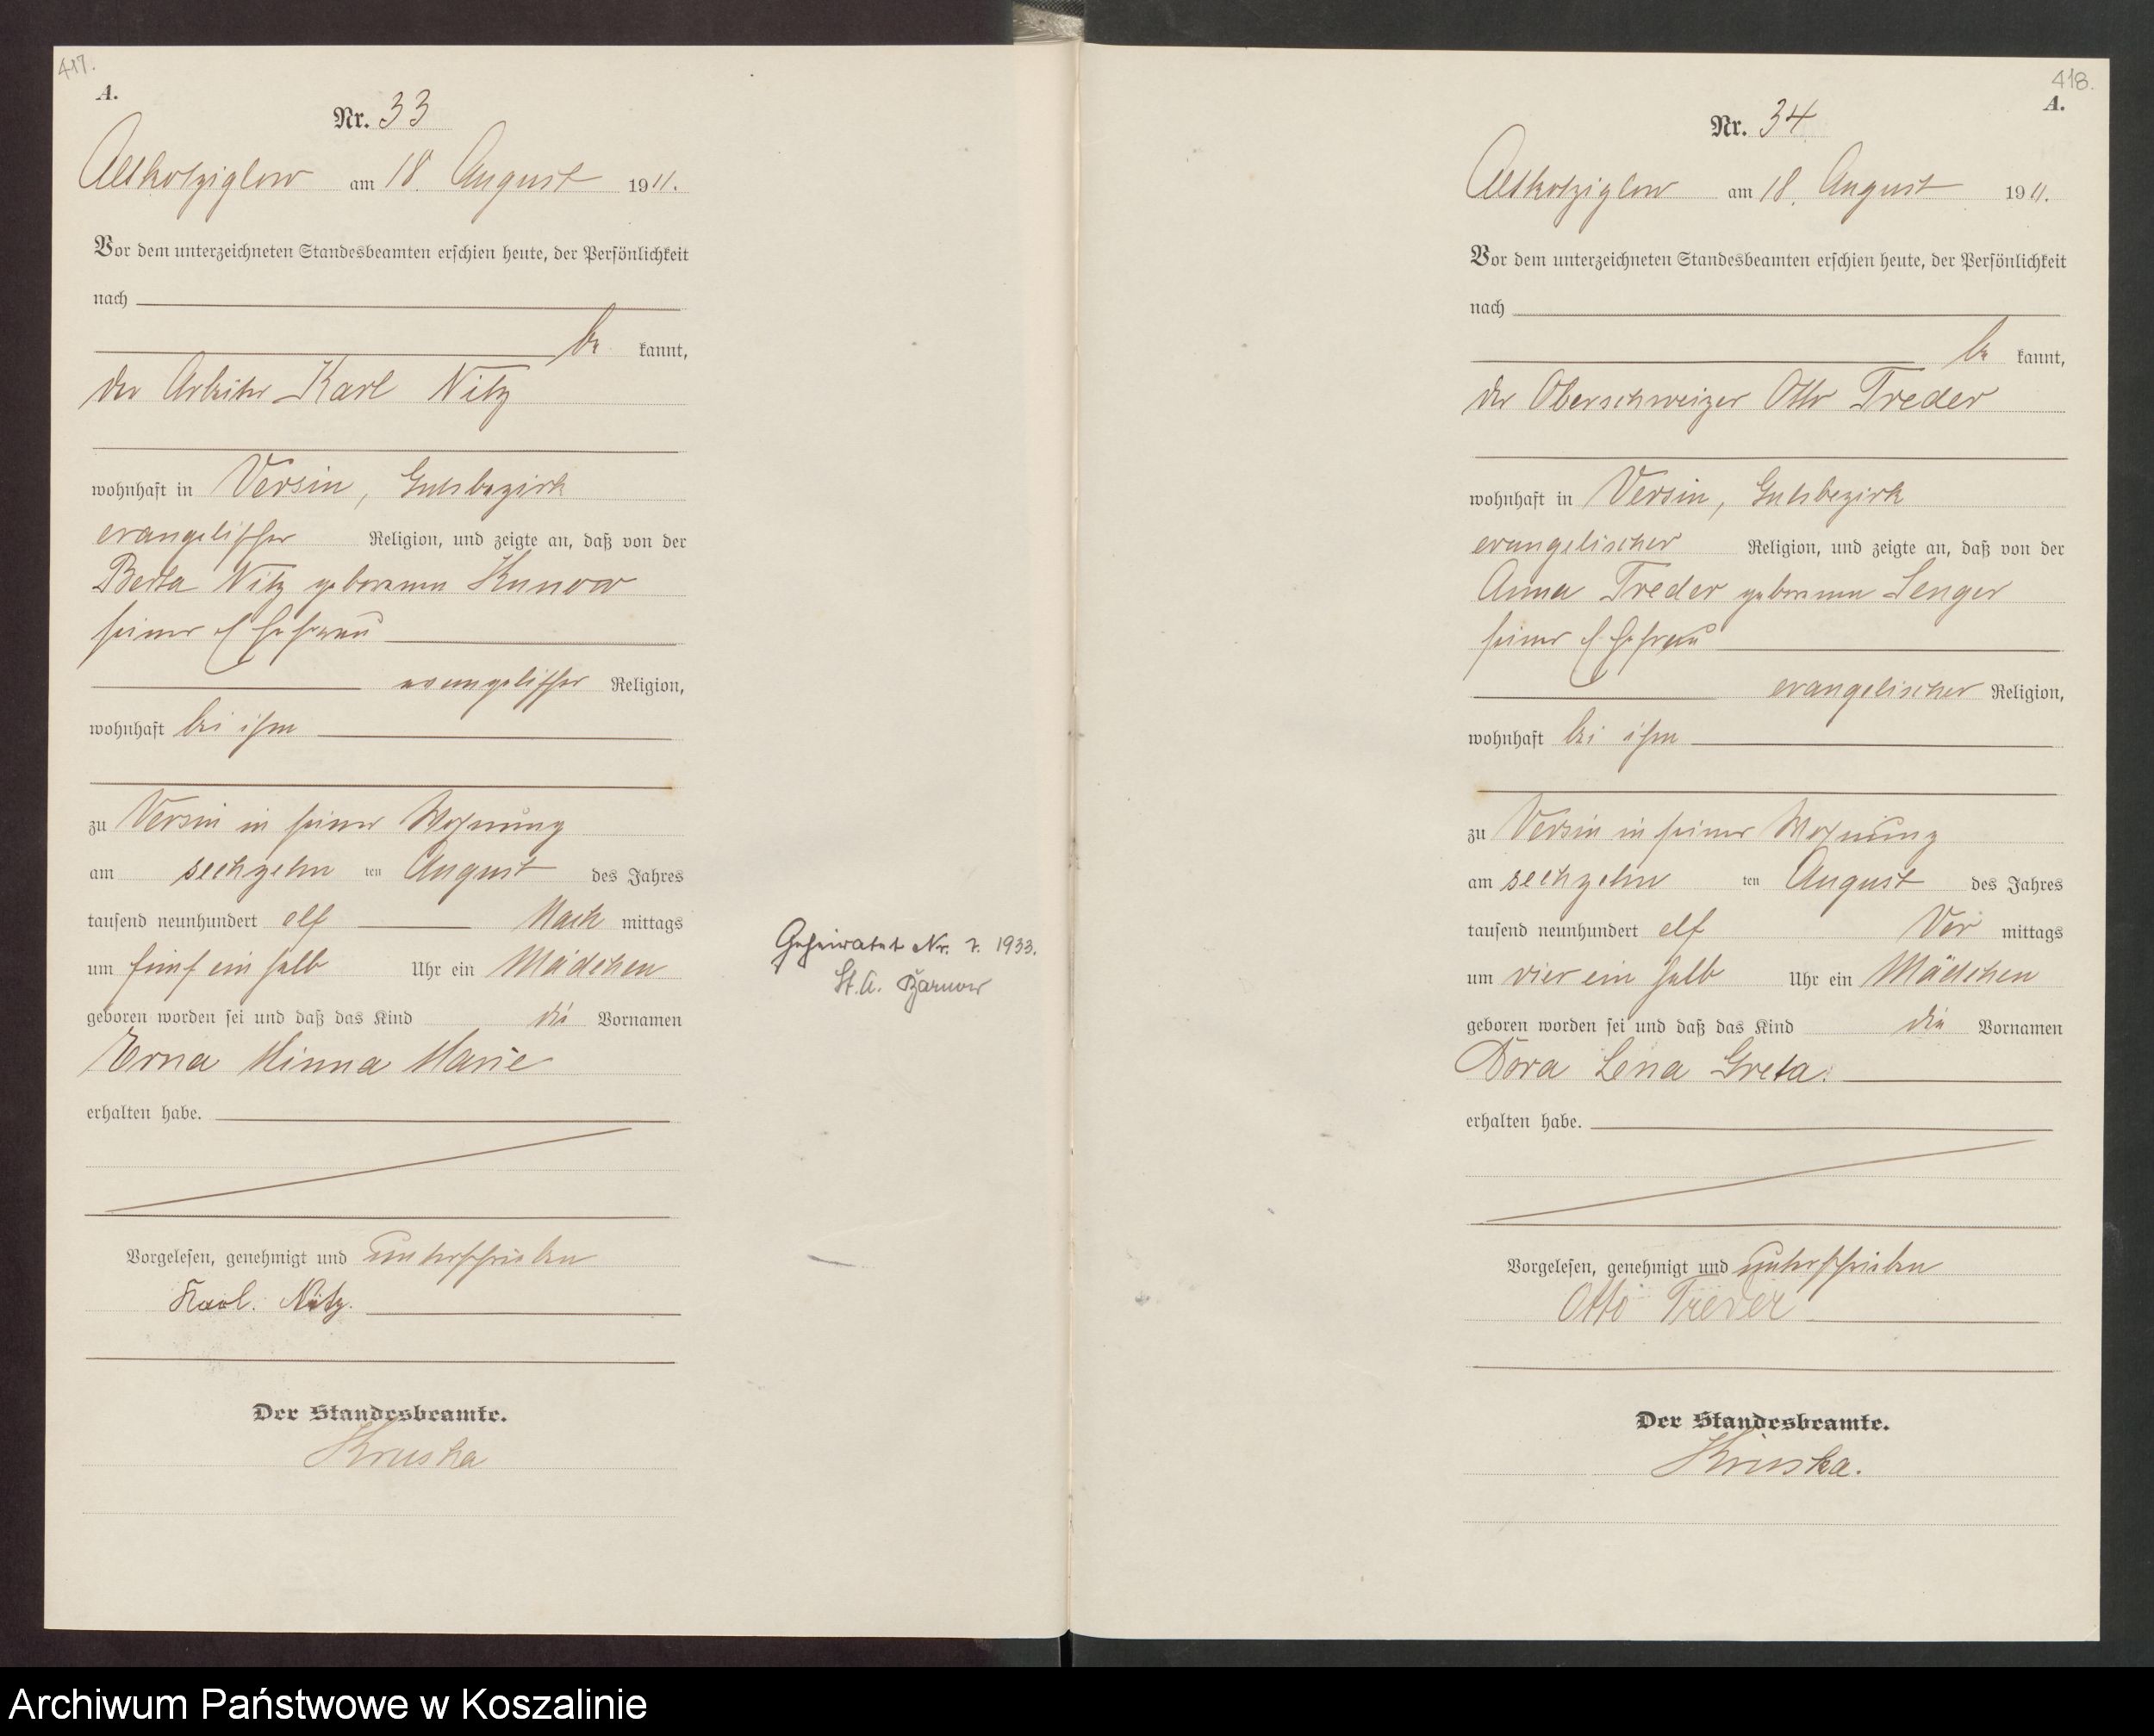 417.
A.
Nr. 33
Altkolziglow am 18. August 1911.
Vor dem unterzeichneten Standesbeamten erschien heute, der Persönlichkeit
nach
be kannt,
der Arbeiter Karl Nitz
wohnhaft in Versin, Gutsbezirk
evangelischer Religion, und zeigte an, daß von der
Berta Nitz geborenen Kunow
seiner Ehefrau
evangelischer Religion,
wohnhaft bei ihm
zu Versin in seiner Wohnung
am sechzehn ten August des Jahres
tausend neunhundert elf Nach mittags
um fünf ein halb Uhr ein Mädchen
geboren worden sei und daß das Kind die Vornamen
Erna Minna Marie
erhalten habe.
Vorgelesen, genehmigt und unterschrieben
Karl. Nitz.
Der Standesbeamte.
Kruska
Geheiratet Nr. 7. 1933.
St.A. Barnow
418.
A.
Nr. 34
Altkolziglow am 18. August 1911.
Vor dem unterzeichneten Standesbeamten erschien heute, der Persönlichkeit
nach
be kannt,
der Oberschweizer Otto Treder
wohnhaft in Versin, Gutsbezirk
evangelischer Religion, und zeigte an, daß von der
Anna Treder geborenen Senger
seiner Ehefrau
evangelischer Religion,
wohnhaft bei ihm
zu Versin in seiner Wohnung
am sechzehn ten August des Jahres
tausend neunhundert elf Vor mittags
um vier ein halb Uhr ein Mädchen
geboren worden sei und daß das Kind die Vornamen
Dora Lena Greta.
erhalten habe.
Vorgelesen, genehmigt und unterschrieben
Otto Treder
Der Standesbeamte.
Kruska.
Archiwum Państwowe w Koszalinie